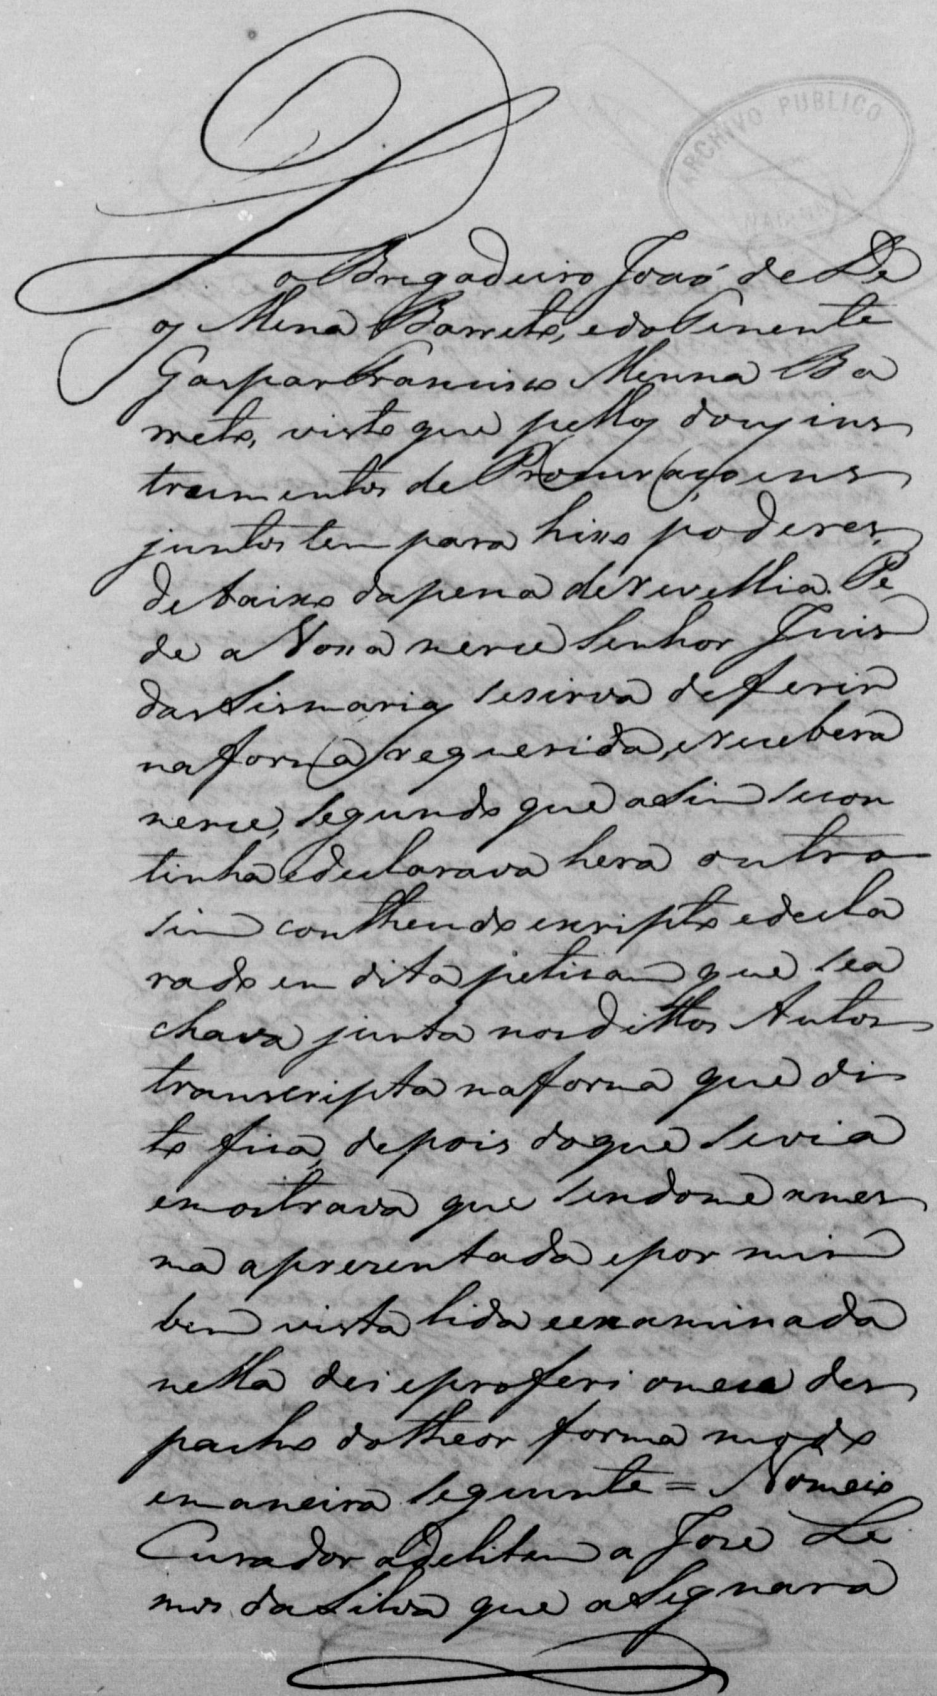 ARCHIVO PUBLICO
NACIONAL
Do Brigadeiro Joaó de De
os Mena Barreto, edoTenente
Gaspar Francisco Menna Ba
rreto, visto que pellos dous ins
trumentos de Procuraçoens
juntos tem para hisso poderes,
debaixo dapena deRevellia. Pe
de a Vossa merce Senhor Juis
das Sismarias sesirva deferir
naforma requerida, ereceberá
merce, segundo que asim secon
tinha edeclarava hera outro
sim contheudo escripto edecla
rado em dita petisam que sea
chava junta nosdittos Autos
transcripta naforma que di
to fica, depois doque sevia
emostrava que sendome ames
ma aprezentada epor mim
bem vista lida eexaminada
nella dei eproferi omeu des
pacho dotheor forma modo
emaneira seguinte = Nomeio
Curador adelitem a Joze Le
mos daSilva que aSignara